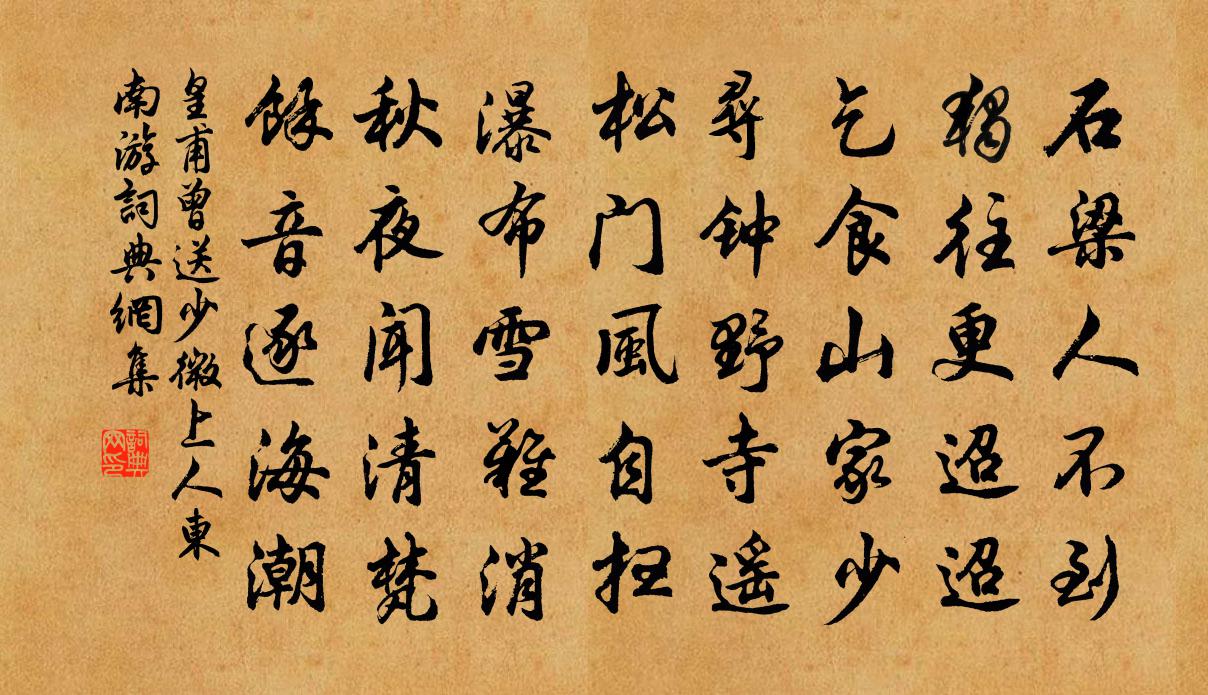 石梁人不到
獨往更迢迢
乞食山家少
尋钟野寺遥
松门風自扫
瀑布雪難消
秋夜闻清梵
餘音逐海潮
皇甫曾送少微上人東
南游詞典網集
詞典
网印